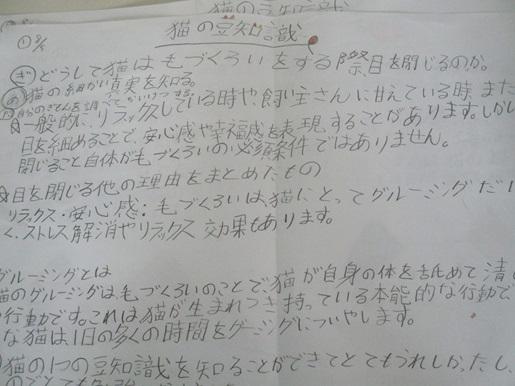 猫の豆知識
猫の豆知識
ぎどうして猫は毛づくろいをする際目を閉じるのか。
め猫の細かい真実を知る。
自分のぎもんを調べてかいけつする。
一般的に、リラックスしている時や飼い主さんに甘えている時また
目を細めることで、安心感や幸福感を表現することがあります。しかし
閉じること自体が毛づくろいの必須条件ではありません。
目を閉じる他の理由をまとめたもの
リラックス・安心感:毛づくろいは、猫にとってグルーミングだけ
く、ストレス解消やリラックス効果もあります。
グルーミングとは
猫のグルーミングは毛づくろいのことで猫が自身の体を舐めて清
行動です。これは猫が生まれつき持っている本能的な行動で
な猫は1日の多くの時間をグーミングについやします。
猫の1つの豆知識を知ることができてとてもうれしかったし、